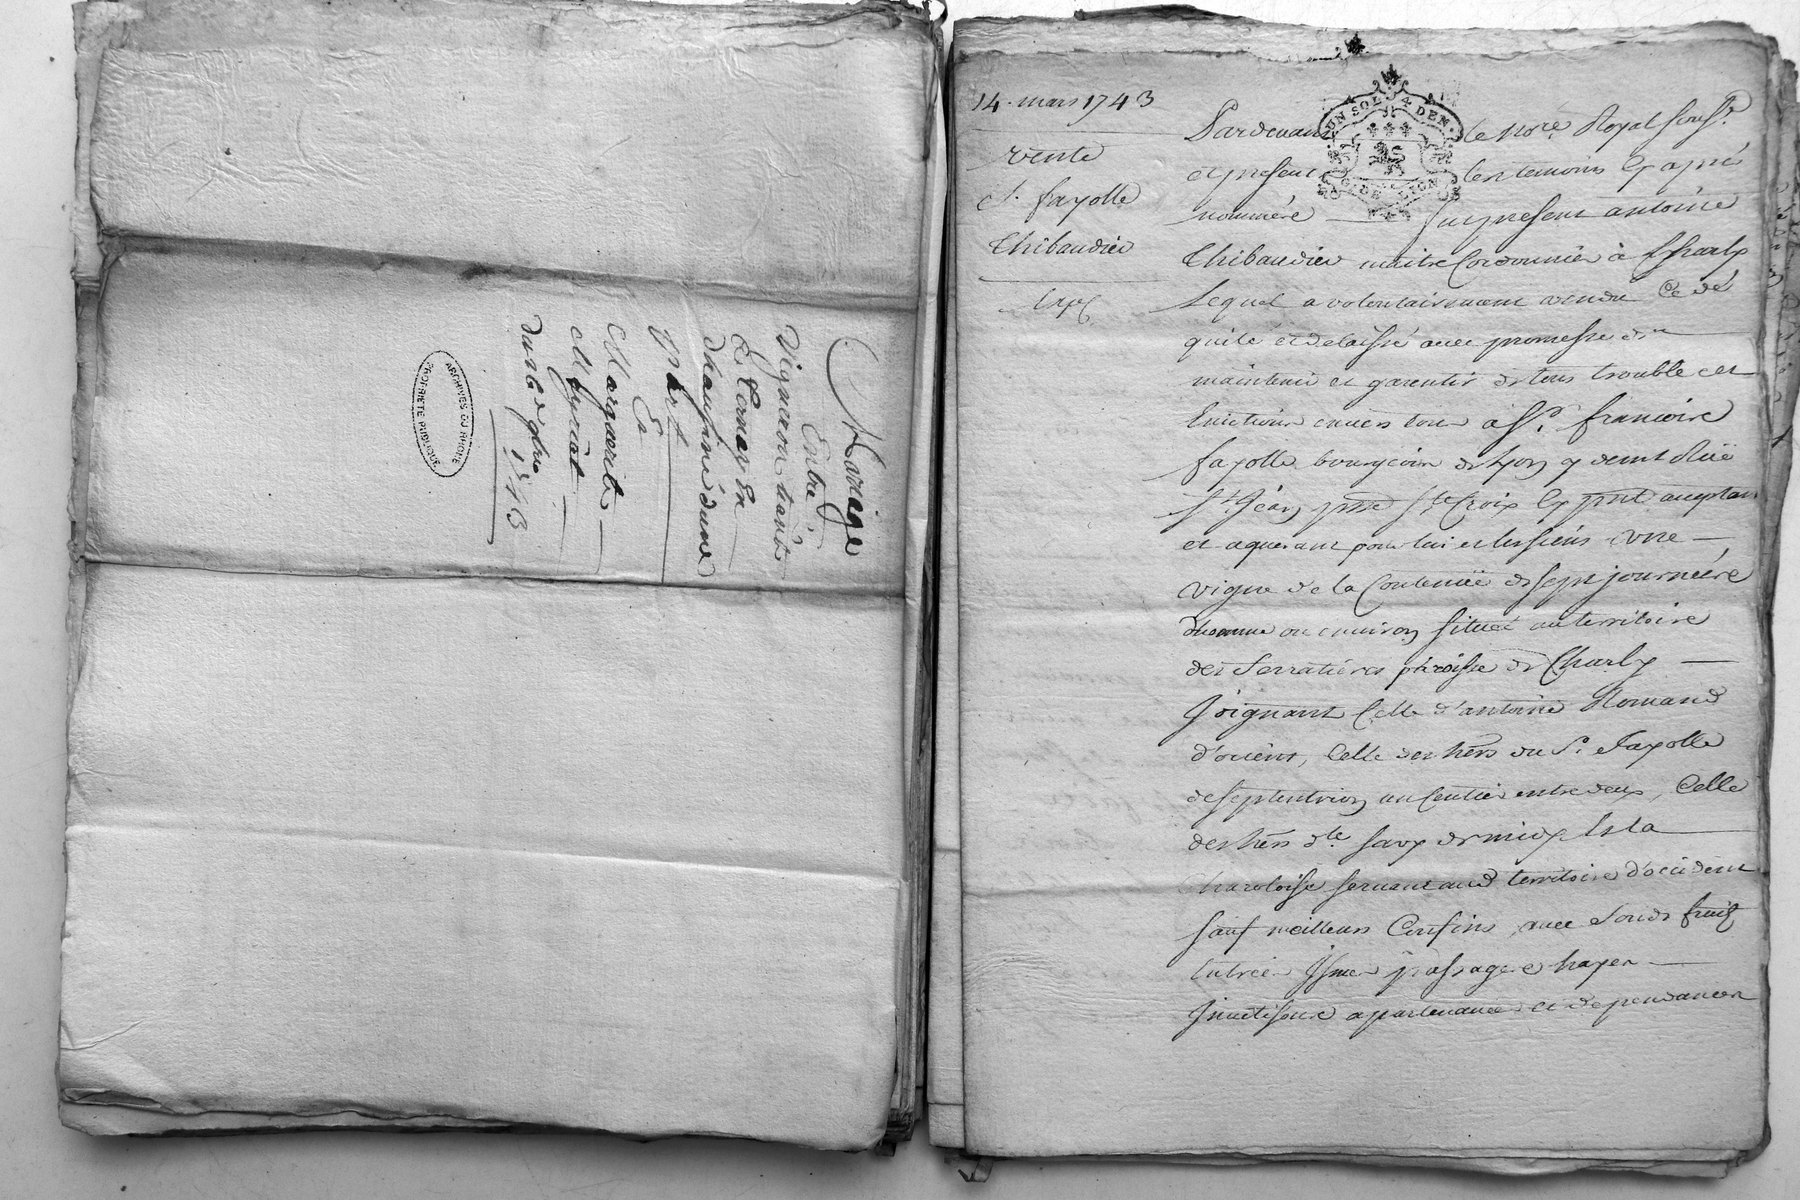 Mariage
Entre
Vigneron
Et
d'une
part
Et
Marguerite
1743
ARCHIVES DU RHONE
PROPRIETE PUBLIQUE
14. mars 1743
vente
Sr. fayolle
Thibaudier
UN SOL 4 DEN.
G. DE LION
Pardevant le Nore Royal souse.
et presents les temoins cy apres
nommés fut present antoine
Thibaudier maitre Cordonnier à Charly
Lequel a volontairement vendu Cedé
quité et delaissé avec promesse de
maintenir et garentir de tous trouble et
Evictions envers tous a Sr. francois
fayolle bourgeois de Lyon y demt Rüe
St. Jean psse Ste Croix Cy pnt acceptant
et aquerant pour lui et les siens une
vigne de la Contenüe de sept journées
d'homme ou environ située au territoire
des Serratieres paroisse de Charly
Joignant Celle d'antoine Romand
d'orient, Celle des hers du Sr. Fayolle
de septentrion un sentier entre deux, Celle
des hers dle Savy de midy Et la
Charoloise servant aud territoire d'occident
sauf meilleurs Confins, avec fonds fruits
Entrées Issues passages hayes
Invetisons apartenances et dependances